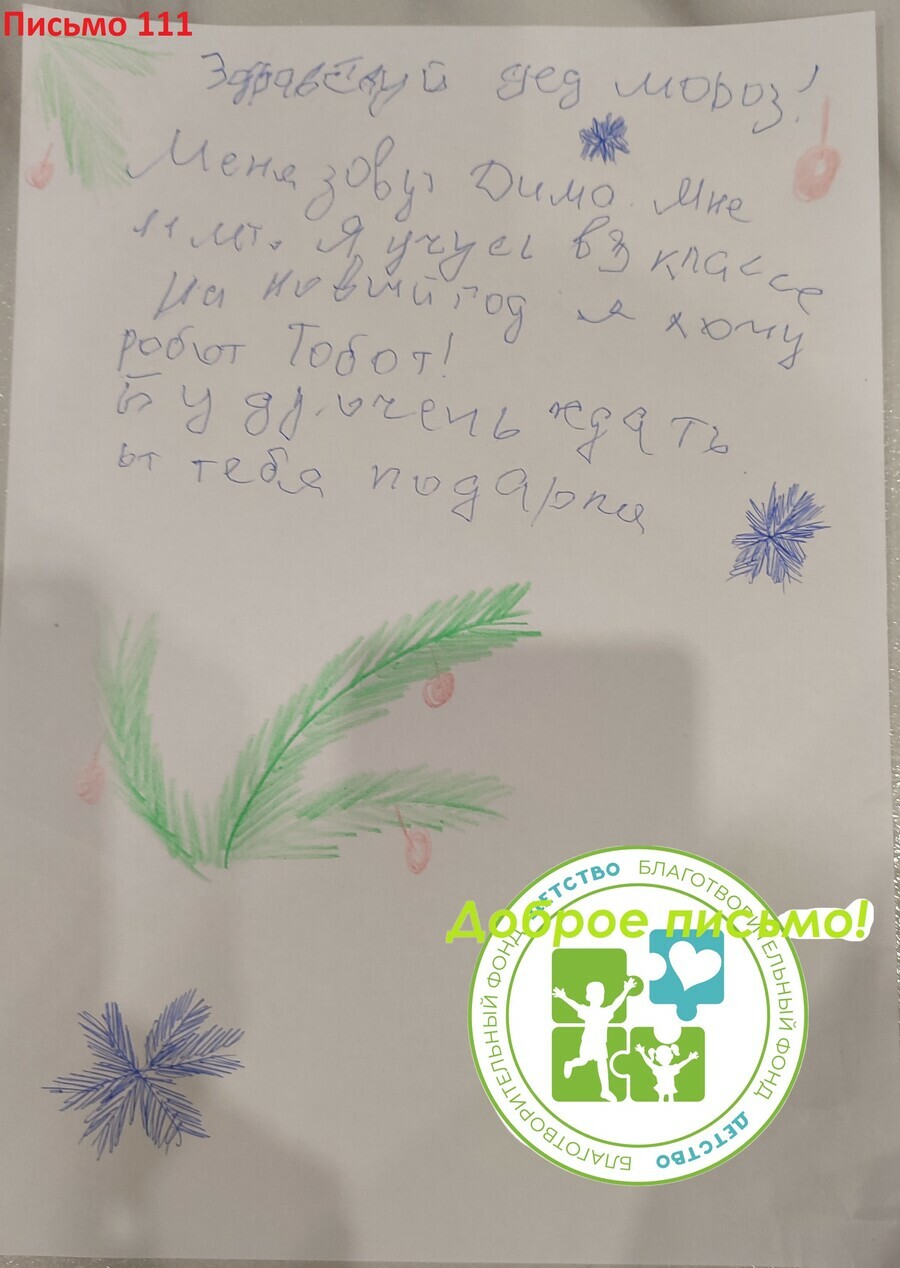 Письмо 111
Здравствуй дед мороз!
Меня зовут Дима. Мне
11 лет. Я учусь в 3 классе
На новый год я хочу
робот Тобот!
Буду очень ждать
от тебя подарка
Доброе письмо!
БЛАГОТВОРИТЕЛЬНЫЙ ФОНД ДЕТСТВО
БЛАГОТВОРИТЕЛЬНЫЙ ФОНД ДЕТСТВО